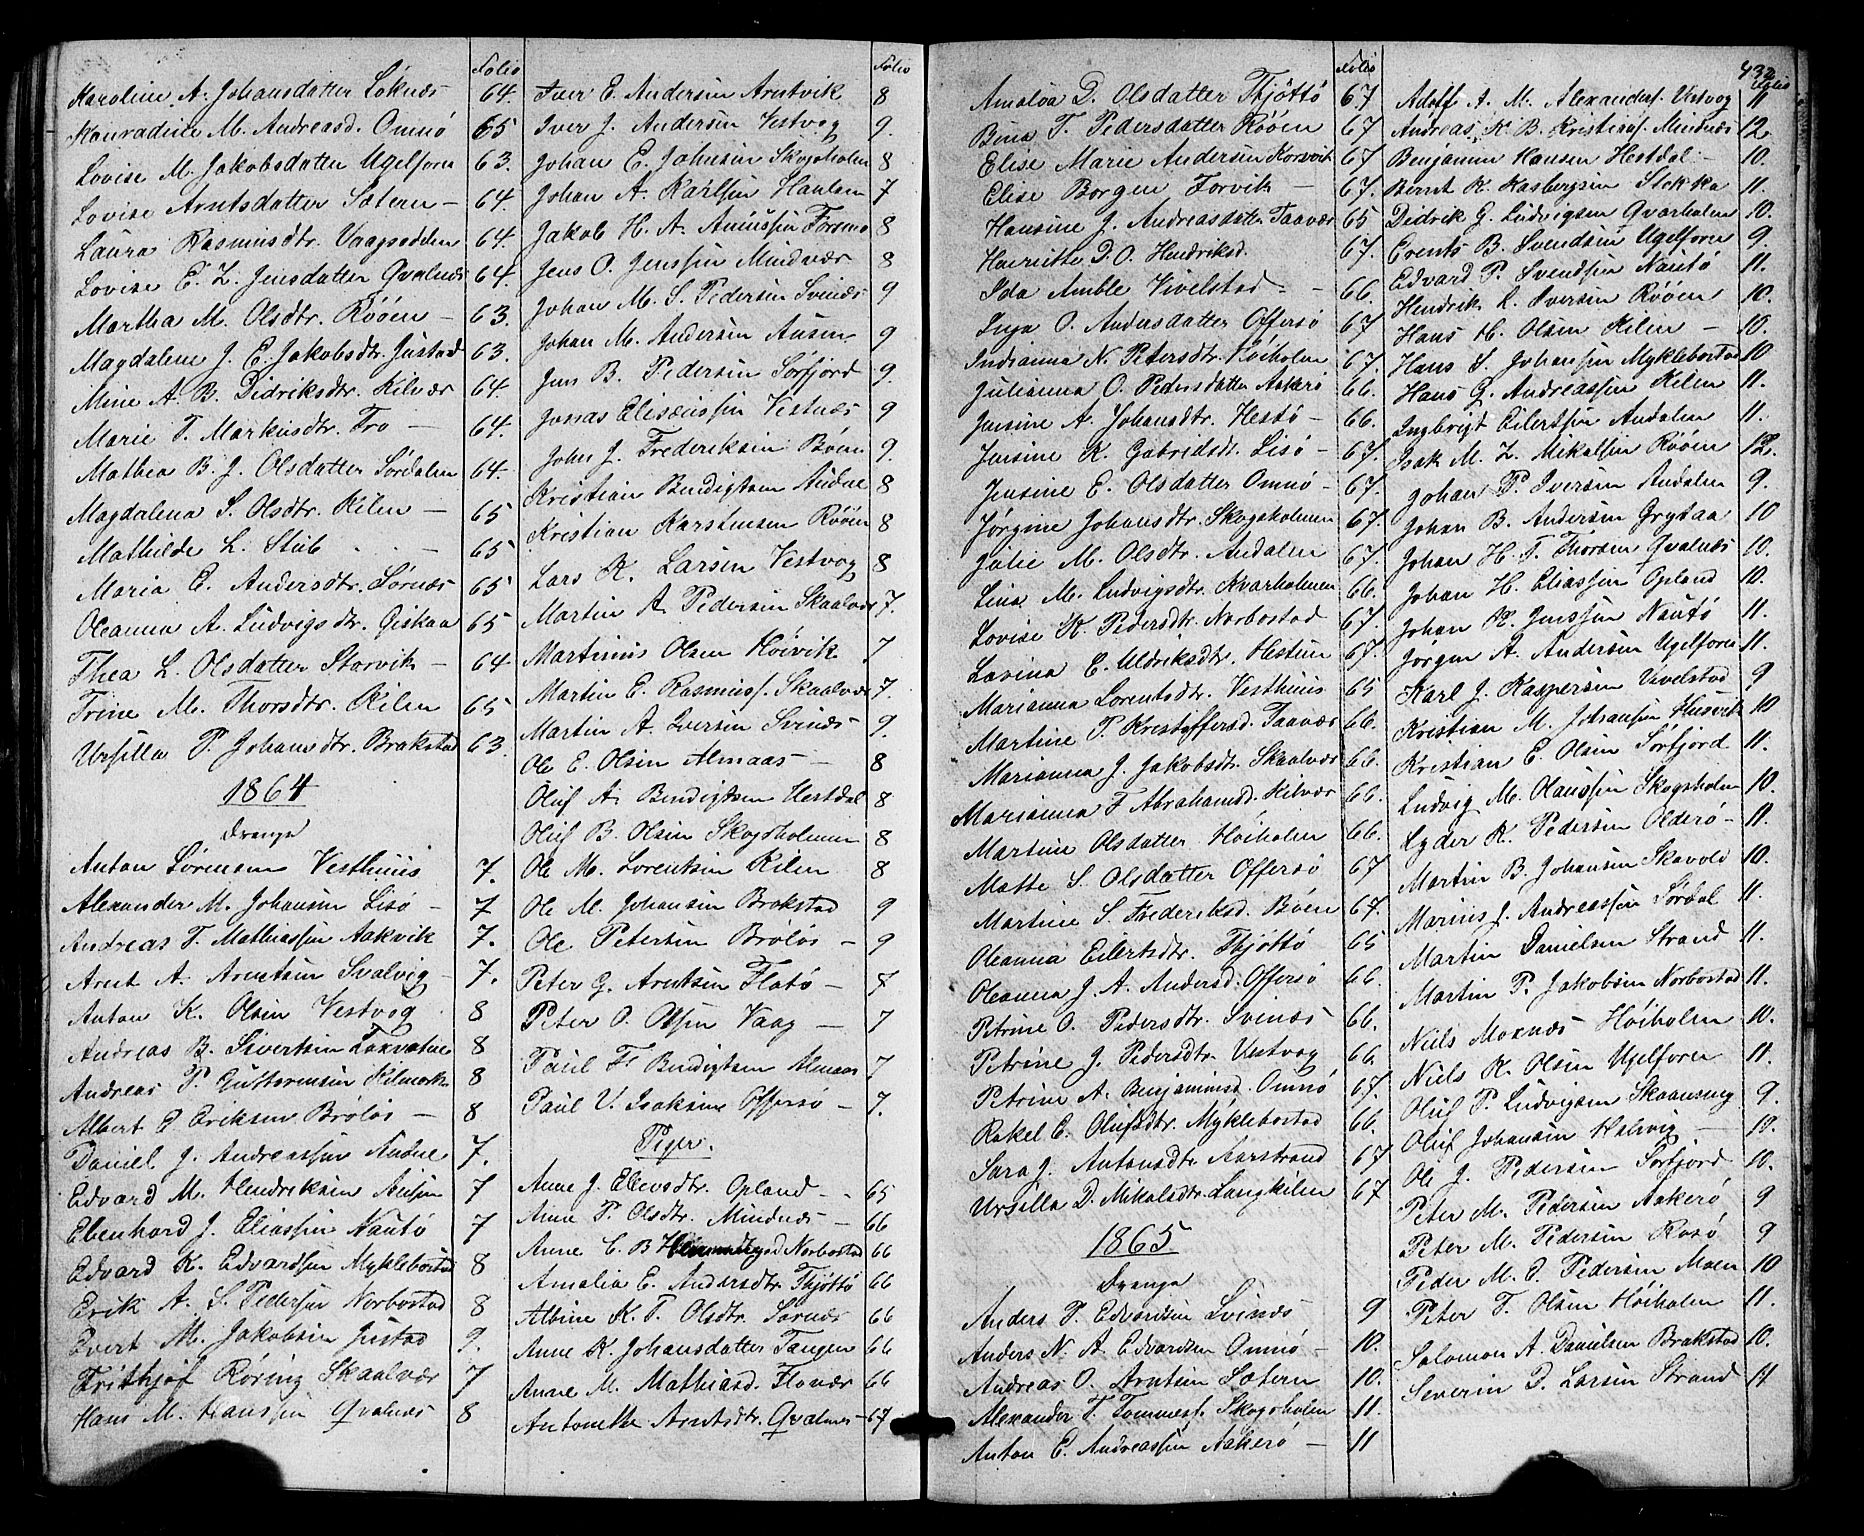 Folio
Karoline A. Johansdatter Løknæs 64.
Konradine M. Andreasd. Omnø 65
Lovise M. Jakobsdatter Ugelforen 63.
Lovise Arntsdatter Sætern - 64.
Laura Rasmusdtr. Vaagsodden 64.
Lovise E. L. Jensdatter Qvalnæs 64.
Martha M. Olsdtr. Røöen - 63.
Magdalena J. E. Jakobsdtr. Justad 63.
Mine A. B. Didriksdtr. Kilvær 64.
Marie T. Markusdtr. Fro - 64.
Mathea B. J. Olsdatter Sørdalen 64.
Magdalena S. Olsdtr. Kilen - 65
Mathilde L. Stub - 65
Maria E. Andersdtr. Sørnæs 65
Oleanna A. Ludvigsdtr. Giskaa 65
Thea L. Olsdatter Storvik - 64
Trine M. Thorsdtr. Kilen 65
Ursilla P. Johansdtr. Brakstad 63.
1864
Drenge
Anton Sørensen Vesthuus 7.
Alexander M. Johansen Lisø - 7
Andreas T. Mathiassen Aakvik 7.
Arnt A. Arntsen Svalvig 7.
Anton K. Olsen Vestvog 8
Andreas B. Sivertsen Laxvatne 8
Andreas P. Guttormsen Kilmork 8
Albert E Eriksen Brøløs - 8
Daniel J. Andreassen Audne 7.
Edvard M. Hendriksen Ausen 7
Ebenhard J. Eliassen Nautø 7
Edvard K. Edvardsen Myklebostad 8
Erik A. S. Pedersen Norbostad 8
Evert M. Jakobsen Justad 9.
Frithjof Røring Skaalvær 7
Hans M. Hanssen Qvalnæs 8
Folio
Iver E. Andersen Arntvik 8
Iver J. Andersen Vestvog 9.
Johan E. Johnsen Skogsholm 8
Johan A. Karlsen Haulen 7
Jakob H. A. Aniussen Forsmo 8
Jens O. Jenssen Mindnær 8
Johan M. S. Pedersen Svinæs 9
Johan M. Andersen Ausen 9
Jens B. Pedersen Sørfjord 9.
Jonas Elisæussen Vestnæs 9
John J. Frederiksen Bøen 9.
Kristian Bendigtsen Audne 8
Kristian Karstensen Røöen 8
Lars K. Larsen Vestvog 8
Martin A. Pedersen Skaalvær 7.
Martinus Olsen Høivik 7
Martin E. Rasmuss. Skaalvær 7.
Martin A. Iversen Svinæs - 9.
Ole E. Olsen Almaas - 8
Oluf A. Bendigtsen Hestdal 8
Oluf B. Olsen Skogsholmen 8
Ole M. Lorentsen Kilen 8
Ole M. Johansen Brakstad 9
Ole Petersen Brøløs - 9
Peter G. Arntsen Flatø - 7
Peter O. Olsen Vaag - 7
Paul F. Bendigtsen Almaas 7
Paul V. Isaksen Offersø - 7.
Piger.
Anne J. Ellevsdtr. Opland - 65
Anne P. Olsdtr. Mindnæs - 66
Anne C. B. Norbostad 66
Amalia E. Andersdtr. Thjøttø 66
Albine K. T. Olsdtr. Sørnæs 66
Anne K. Johansdatter Tangen 66
Anne M. Mathiasd. Flovær 66
Antonette Arntsdtr. Qvalnæs - 67
Folio
Amaløa D. Olsdatter Thjøttø 67
Bina T. Pedersdatter Røöen 67
Elise Marie Andersen Korsvik 67.
Elise Borgen Forvik - 67.
Hansine J. Andreasdatter Taavær 65
Henriette D. O. Hendriksd. 67.
Ida Amble Vivelstad - 66.
Inga O. Andersdatter Offersø 67
Indianna N. Petersdtr. Høiholm 67.
Julianna O. Pedersdatter Aakerø 66.
Jensine A. Johansdtr. Hestø - 66.
Jensine K. Gabrielsdt. Lisø - 67.
Jensine E. Olsdatter Omnø - 67.
Jørgine Johansdtr. Skogsholmen 67.
Julie M. Olsdtr. Andalen 67.
Lina M. Ludvigsdtr. Kvarholmen 66.
Lovise K. Pedersdtr. Norbostad 67.
Lovina E. Uldriksdtr. Hestun 67
Marianna Lorentsdtr. Vesthuus 65
Martine P. Kristoffersd. Taavær 66.
Marianna J. Jakobsdtr. Skaalvær 66.
Marianna F. Abrahamsd. Kilvær 66.
Martine Olsdatter Høiholm 66.
Matte S. Olsdatter Offersø 67
Martine S. Frederiksd. Bøen 67.
Oleanna Eilertsdtr. Thjøttø 65
Oleanna J. A. Andersd. Offersø 66.
Petrine O. Pedersdtr. Svinæs 66.
Petrine J. Pedersdtr. Vestvog 66.
Petrine A. Benjaminsd. Omnø 67.
Rakel C. Olufsdtr. Myklebostad 66.
Sara J. Antonsdtr Aarstrand 67
Ursilla D. Mikalsdtr. Langkilen 67
1865
Drenge
Anders P. Edvardsen Svinæs 9
Anders N. A. Edvardsen Omnø - 10.
Andreas O. Arntsen Sætern 10.
Alexander T. Tommess. Skogsholm 11.
Anton E. Andreassen Aakerø - 11
432
Folio
Adolf A. M. Alexanders. Vestvog 11
Andreas K. B. Kristians. Mindnæs 12
Benjamin Hansen Hestdal - 10.
Bernt K. Kasbergsen Stokka 11.
Didrik G. Ludvigsen Qvarholm 10.
Erents B. Svendsen Ugelforen 9.
Edvard P. Svendsen Nautø 11.
Hendrik L. Iversen Røöen 10.
Hans H. Olsen Kilen - 10.
Hans S. Johansen Myklebostad 10
Hans G. Andreassen Kilen 11.
Ingbrigt Eilertsen Andalen 11.
Isak M. Z. Mikalsen Røöen 12.
Johan P. Iversen Andalen 9.
Johan B. Andersen Grytaa 10
Johan H. T. Thorsen Qvalnæs 10.
Johan H. Eliassen Opland 10.
Johan K. Jenssen Nautø 11.
Jørgen A. Andersen Ugelforen 11.
Karl J. Kaspersen Vevelstad 9
Kristian M. Johansen Husvik 10
Kristian E. Olsen Sørfjord 11.
Ludvig M. Olaussen Skogsholm 10.
Lyder K. Pedersen Olderø - 11.
Martin B. Johansen Skavold 10.
Marius J. Andreassen Sørdal 11.
Martin Danielsen Strand 11.
Martin P. Jakobsen Norbostad 11.
Niels Moxnæs Høiholm 10.
Niels K. Olsen Ugelforen 11.
Oluf P. Ludvigsen Skaanseng 9.
Oluf Johansen Halsvig - 10.
Ole J. Pedersen Sørfjord 10.
Peter M. Pedersen Aakerø 9
Peter M. Pedersen Rosø 9
Peder M. O. Pedersen Moen 10
Peter T. Olsen Høiholm 11.
Salomon A. Danielsen Brakstad 10.
Severin D. Larsen Strand 11